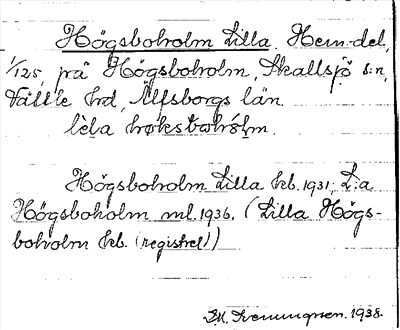 Högsboholm Lilla, Hem.del,
1/125, på Högsboholm, Skallsjö s:n,
Vättle hd, Älfsborgs län.
lı̀la høksbohólm.
Högsboholm Lilla kb. 1931; L:a
Högsboholm ml. 1936. (Lilla Högs-
boholm kb. (registret))
1938.